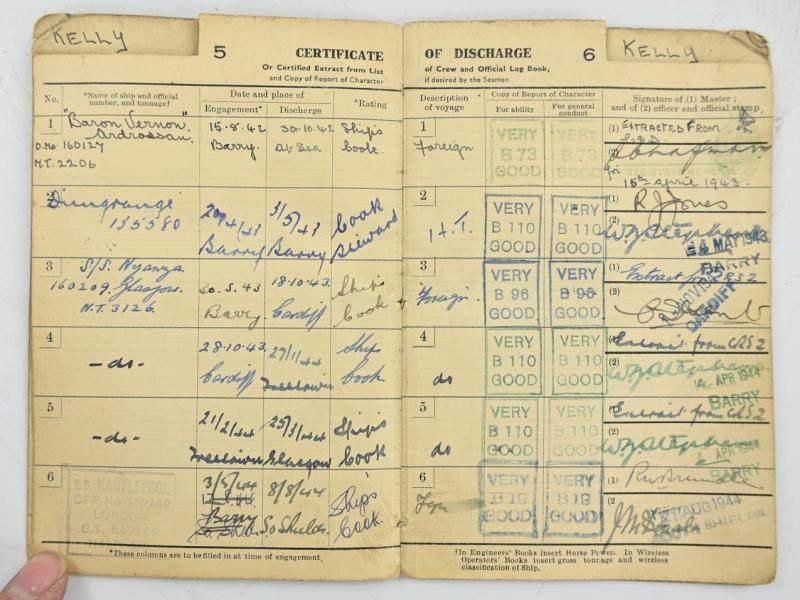 KELLY
5
CERTIFICATE
Or Certified Extract from List
and Copy of Report of Character
No.
*Name of ship and official
number, and tonnage†
Date and place of
Engagement* Discharge
*Rating
1
"Baron Vernon"
Ardrossan.
O.No. 160127
N.T. 2206
15.8.42
Barry.
30.10.42
At Sea
Ship's
Cook.
2
135580
3/5/43
Barry
Barry
Cook
Steward
3
S/S. Nyanza
160209. Glasgow.
N.T. 3126.
20.5.43
Barry
18.10.43.
Cardiff
Ship's
Cook
4
-do-
28.10.43.
Cardiff
Freetown
Ships
Cook
5
-do-
21/2/44
Freetown
25/3/44
Glasgow
Ship's
Cook
6
S.S. HARTLEPOOL
3/5/44
Barry
8/8/44
So Shields.
Ship's
Cook.
*These columns are to be filled in at time of engagement.
KELLY
OF DISCHARGE
6
of Crew and Official Log Book,
if desired by the Seaman
Description
of voyage
Copy of Report of Character
For ability
For general
conduct
Signature of (1) Master;
and of (2) officer and official stamp.
1
Foreign
VERY
B 73
GOOD
VERY
B 73
GOOD
(1) EXTRACTED FROM
(2)
for
15th April 1943.
2
H.T.
VERY
B 110
GOOD
VERY
B 110
GOOD
(1) R J Jones
(2)
4 MAY 1943
BARRY
3
Foreign
VERY
B 96
GOOD
VERY
B 96
GOOD
(1) Extract from
(2)
CARDIFF
4
do
VERY
B 110
GOOD
VERY
B 110
GOOD
(1) Extract from CRS 2
(2)
APR 1944
BARRY
5
do
VERY
B 110
GOOD
VERY
B 110
GOOD
(1) Extract from CRS 2
(2)
APR 1944
BARRY
6
VERY
B 19
GOOD
VERY
B 19
GOOD
(1)
(2)
AUG 1944
†In Engineers' Books insert Horse Power. In Wireless
Operators' Books insert gross tonnage and wireless
classification of Ship.